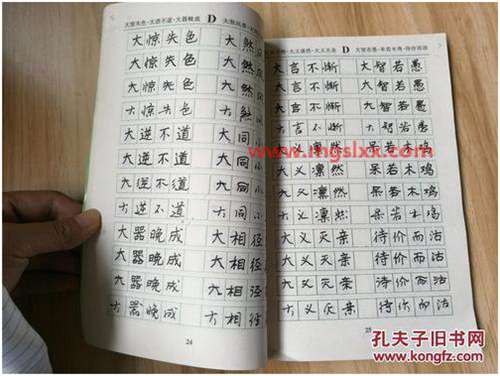 大惊失色·大逆不道·大器晚成 D
大惊失色 大煞
大惊失色 大煞
大惊失色 大煞
大惊失色 大煞
大逆不道 大同小
大逆不道 大同小
大逆不道 大同小
大逆不道 大同小
大器晚成 大相径
大器晚成 大相径
大器晚成 大相径
大器晚成 大相径
24
大义凛然·大义灭亲 D 大智若愚·呆若木鸡·待价而沽
大言不惭 大智若愚
大言不惭 大智若愚
大言不惭 大智若愚
大言不惭 大智若愚
大义凛然 呆若木鸡
大义凛然 呆若木鸡
大义凛然 呆若木鸡
大义凛然 呆若木鸡
大义灭亲 待价而沽
大义灭亲 待价而沽
大义灭亲 待价而沽
大义灭亲 待价而沽
25
www.mgslxx.com
孔夫子旧书网
www.kongfz.com